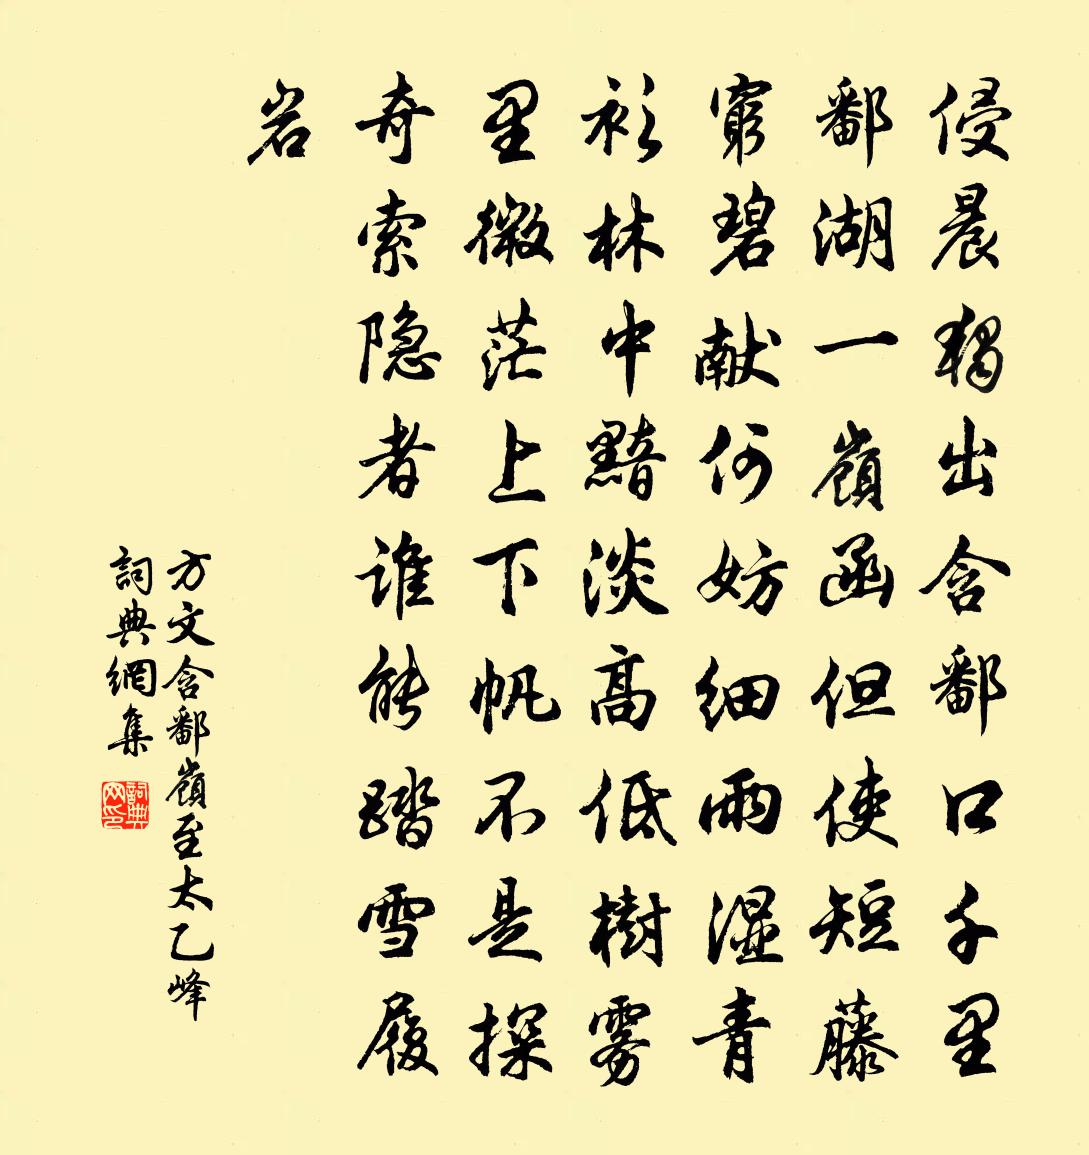 侵晨独出含鄱口千里
鄱湖一嶺函但使短藤
窮碧献何妨细雨湿青
衫林中黯淡高低樹雾
里微茫上下帆不是探
奇索隐者谁能踏雪履
岩
方文含鄱嶺至太乙峰
詞典網集
詞典网印